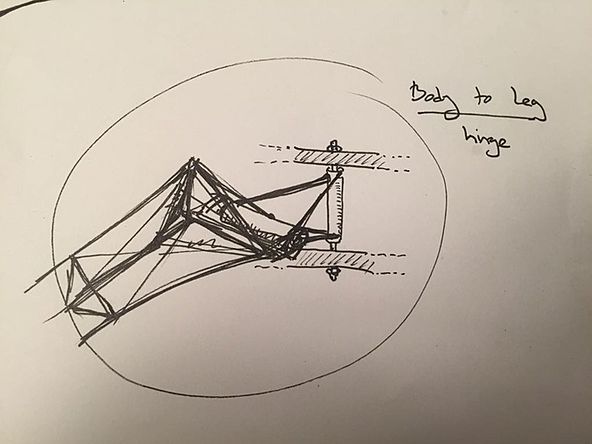 Body to Leg
hinge